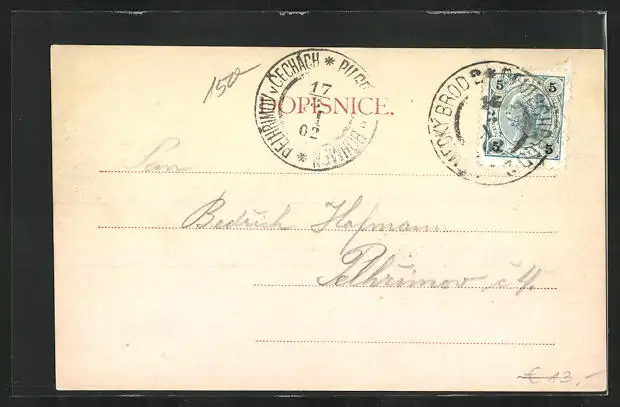 150-
PELHŘIMOV v ČECHÁCH * PILGRAM BÖHMEN *
17
02
DOPISNICE.
NĚMECKÝ BROD DEUTSCHBROD
5 5
5 5
Pan
Bedřich Hofmann
Pelhřimov
€ 13,-